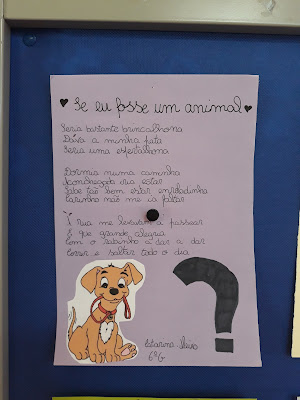 ♥ Se eu fosse um animal ♥
Seria bastante brincalhona
Dava a minha pata
Seria uma espertalhona
Dormia numa caminha
Aconchegada iria estar
Sabe tão bem estar enroladinha
Carinho não me ia faltar
À rua me levariam a passear
E que grande alegria
Com o rabinho a dar a dar
Correr e saltar todo o dia
?
Catarina
6ºG